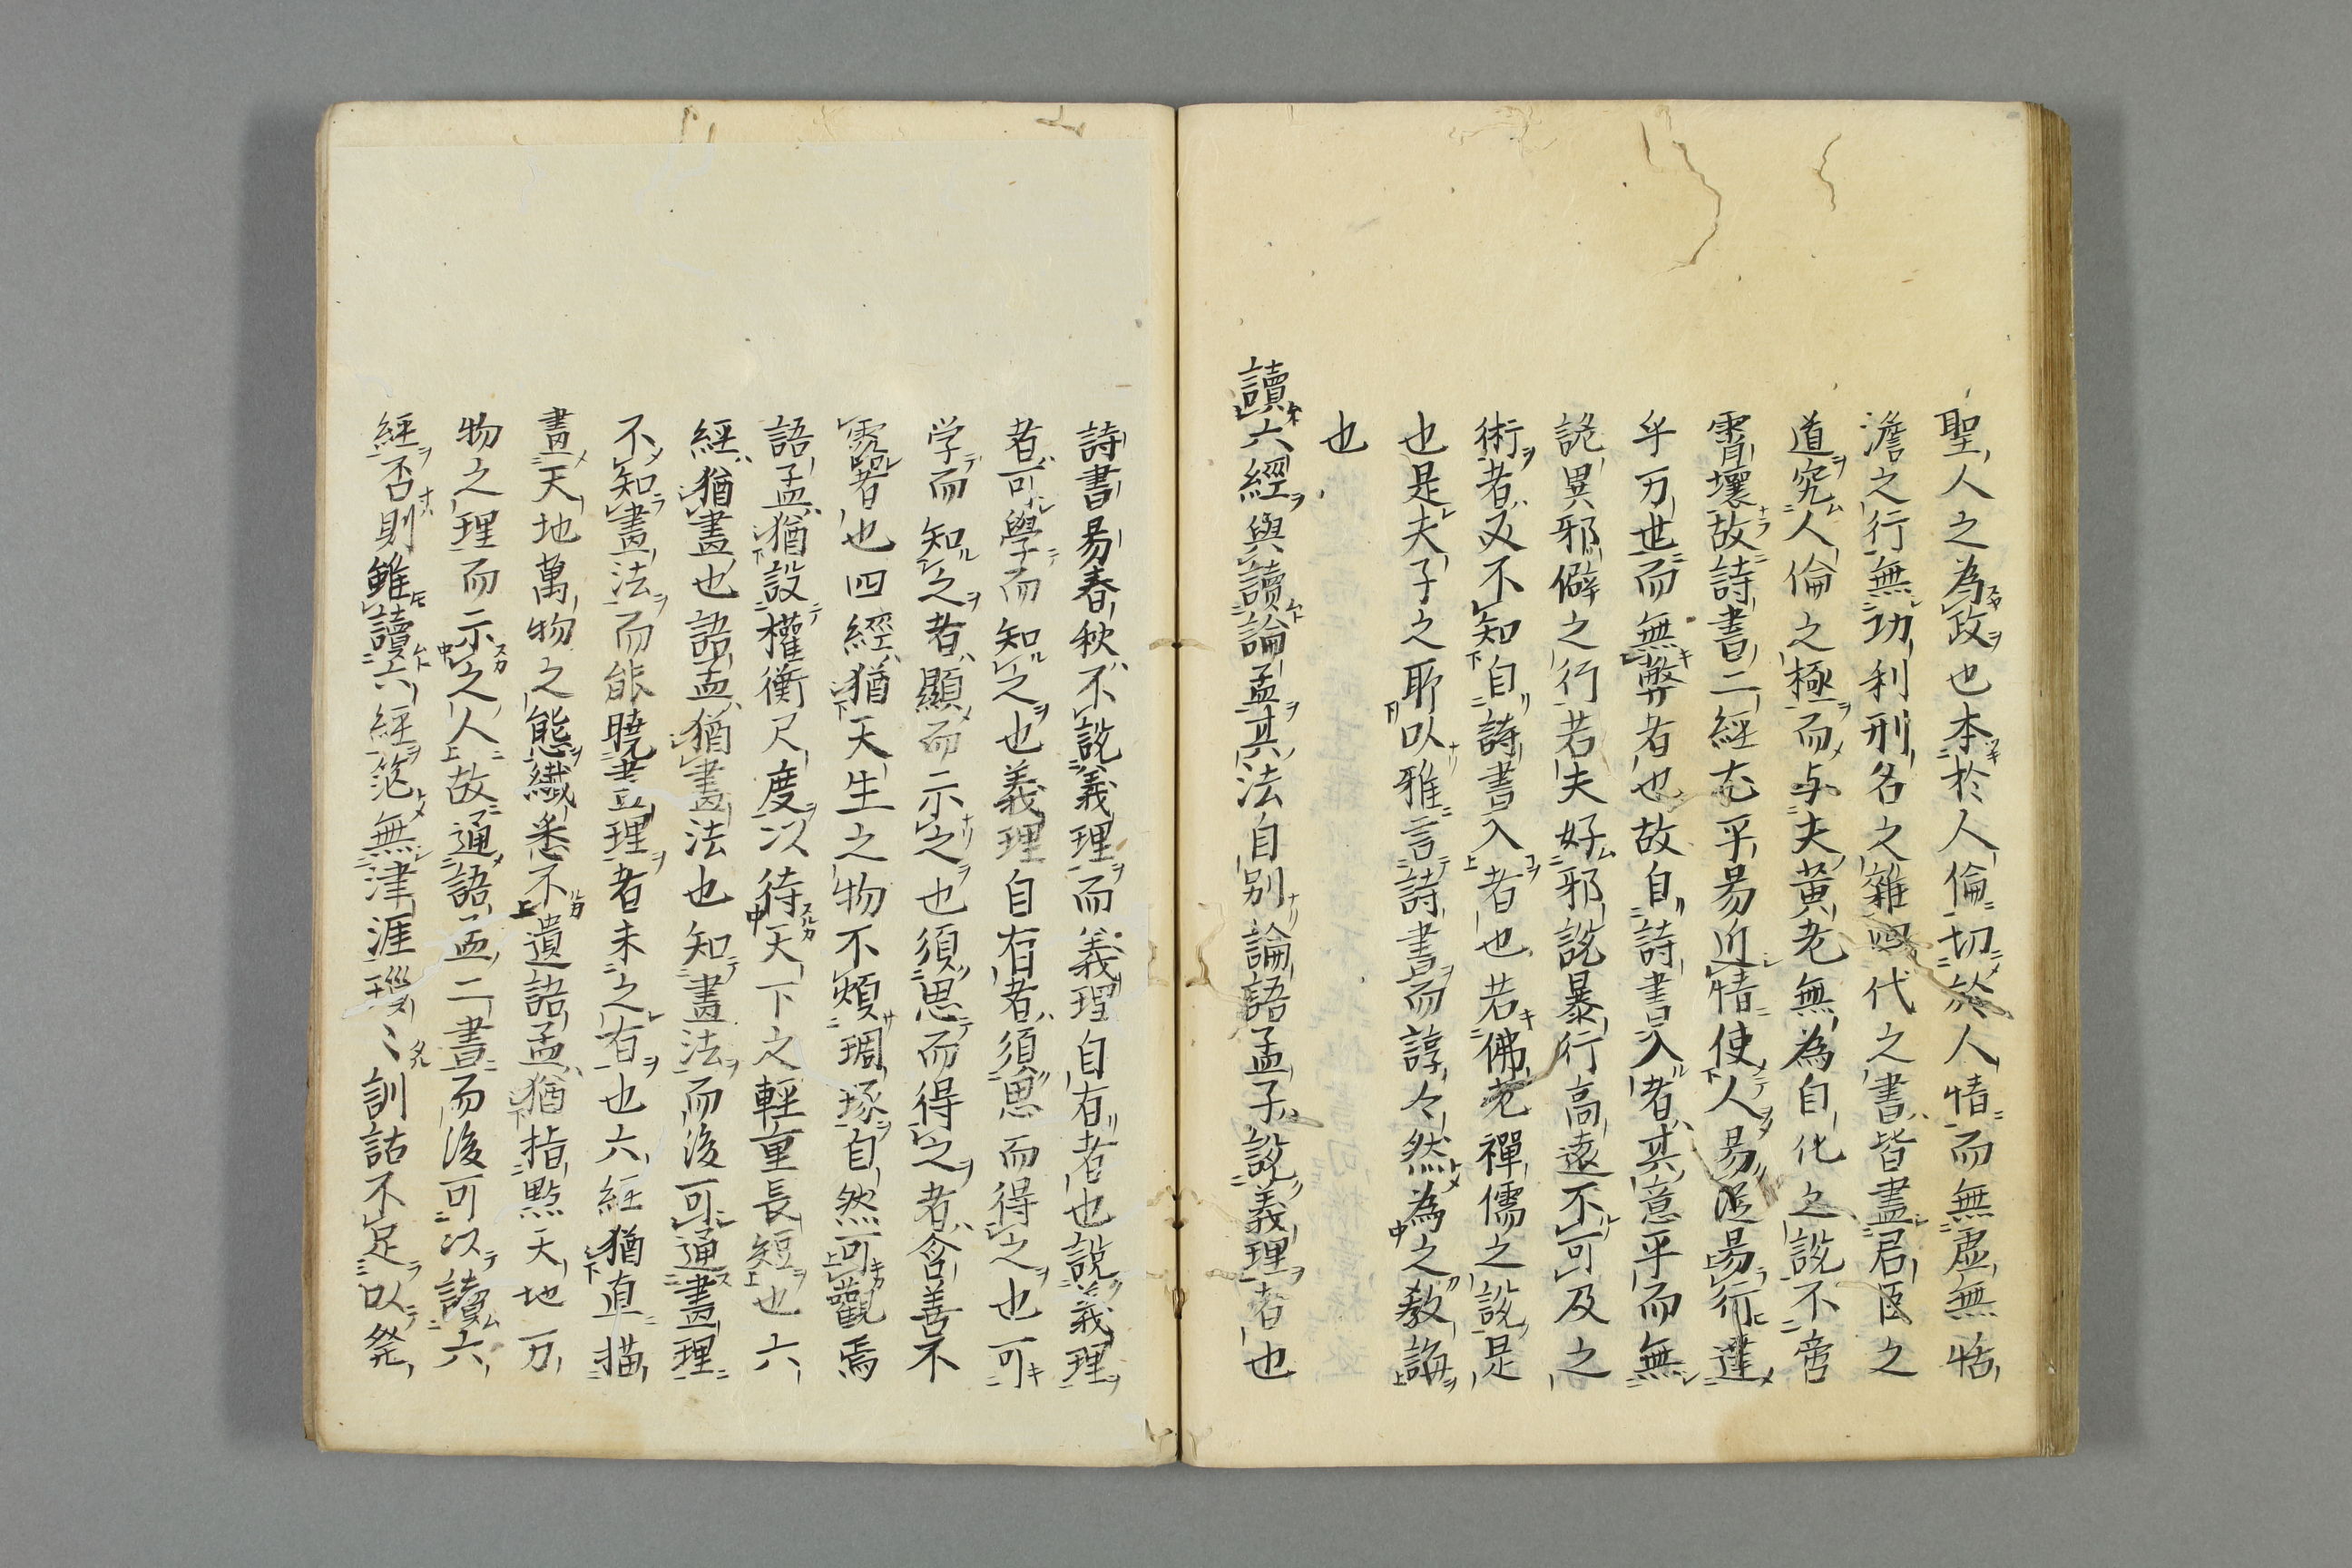 聖人之為政也本於人倫切於人情而無虛無恬
澹之行無功利刑名之雜四代之書皆盡君臣之
道究人倫之極而与夫黄老無為自化之說不啻
霄壤故詩書二經尤平易近情使人易從易行達
乎万世而無弊者也故自詩書入者其意平而無
詭異邪僻之行若夫好邪說暴行高遠不可及之
術者又不知自詩書入者也若佛老禪儒之說是
也是夫子之所以雅言詩書而諄々然為之教誨
也
讀六經與讀論孟其法自別論語孟子說義理者也
詩書易春秋不說義理而義理自有者也說義理
者可學而知之也義理自有者須思而得之也可
学而知之者顯而示之也須思而得之者含善不
露者也四經猶天生之物不煩琱琢自然可觀焉
語孟猶設權衡尺度以待天下之輕重長短也六
經猶畫也語孟猶畫法也知畫法而後可通畫理
不知畫法而能曉畫理者未之有也六經猶直描
畫天地萬物之態纎悉不遺語孟猶指點天地万
物之理而示之人故通語孟二書而後可以讀六
經否則雖讀六經茫無津涯璅〻訓詁不足以発